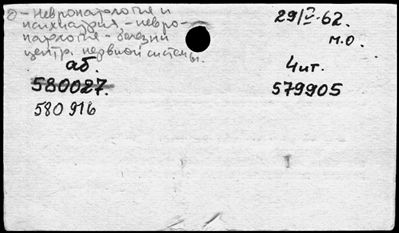 ②-Невропатология и
психиатрия-невро-
патология-болезни
центр. нервной системы.
29/V-62.
м.о.
аб.
580027.
580916
4ит.
579905